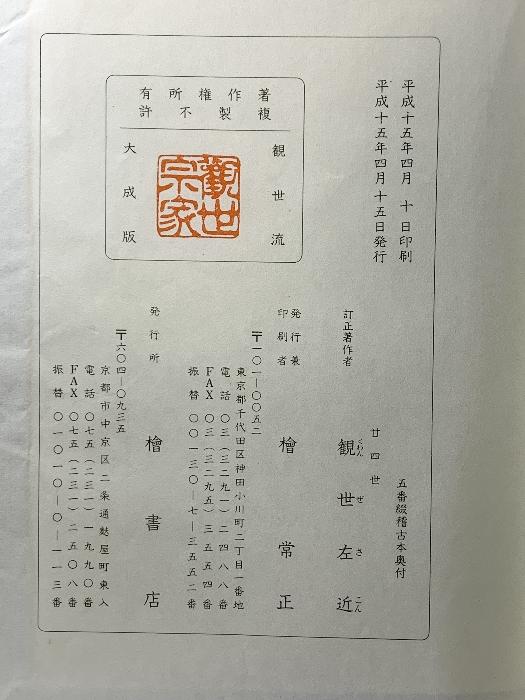 平成十五年四月 十日印刷
平成十五年四月十五日発行
著作権所有
複製不許
観世流
觀世宗家
大成版
五番綴稽古本奥付
訂正著作者
廿四世
観世左近
くわんぜさこん
発行兼
印刷者
檜常正
〒一〇一―〇〇五二
東京都千代田区神田小川町二丁目一番地
電話 〇三(三二九一)二四八八番
FAX 〇三(三二九五)三五五四番
振替 〇〇一三〇―七―三五五二番
発行所
檜書店
〒六〇四―〇九三五
京都市中京区二条通麩屋町東入
電話 〇七五(二三一)一九九〇番
FAX 〇七五(二三一)二五〇八番
振替 〇一〇一〇―〇―一一三番